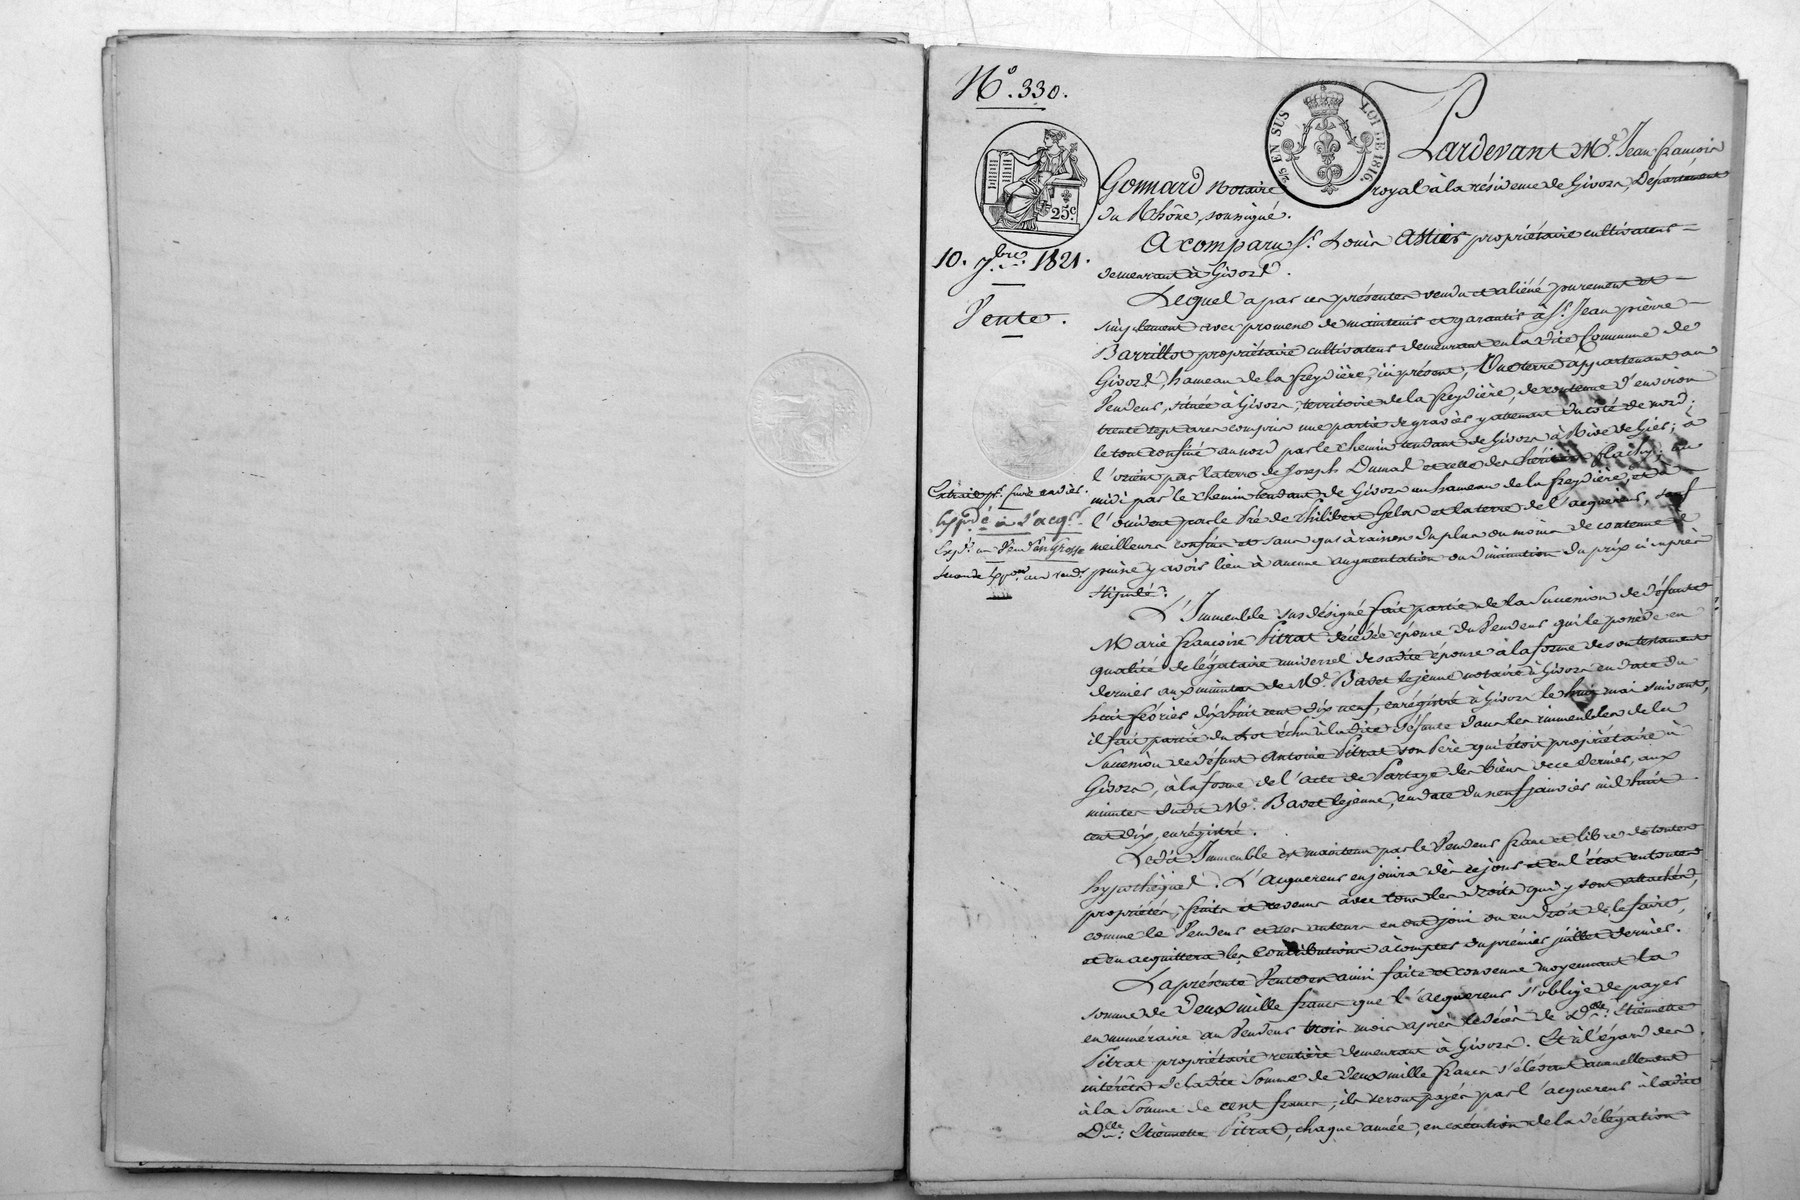 N.o 330.
25c
5/5 EN SUS
LOI DE 1816.
Pardevant Me. Jean françois
Gonnard Notaire royal à la résidence de Givors, Département
du Rhône, soussigné.
10. 7bre. 1821.
Vente.
A comparu Sr. Louis Astier propriétaire cultivateur
demeurant à Givors.
Lequel a par ces présentes vendu et aliéné purement et
simplement avec promesse de maintenir et garantir à Sr. Jean pierre
Barrillot propriétaire cultivateur demeurant en la dite Commune de
Givors, hameau de la freydière, ici présent, Une terre appartenant au
Vendeur, située à Givors, territoire de la freydière, de contenue d'environ
trente sept ares compris une partie de graviers y attenant du coté de nord;
le tout confiné au nord par le chemin tendant de Givors à Rive de Gier; à
l'orient par la terre de Joseph Dumal et celle des héritiers flachy; au
midi par le chemin tendant de Givors au hameau de la freydière, et à
l'occident par le Pré de Philibert Gelas et la terre de l'acquereur, sauf
meilleurs confins et sans qu'à raison du plus ou moins de contenue il
puisse y avoir lieu à aucune augmentation ou diminution du prix ci après
stipulé.
Expé. à l'acqr.
L'Immeuble sus désigné fait partie de la Succession de défunte
Marie françoise Pitrat décédée épouse du Vendeur qui le possède en
qualité de légataire universel de sadite épouse à la forme de son testament
dernier aux minutes de Me. Badet lejeune notaire à Givors en date du
huit février dix huit cent dix neuf, enrégistré à Givors le huit mai suivant,
il fait partie du lot échu à ladite défunte dans les immeubles de la
Succession de défunt Antoine Pitrat son Père qui étoit propriétaire à
Givors, à la forme de l'acte de Partage des biens de ce dernier, aux
minutes dudit Me. Badet lejeune, en date du neuf janvier mil huit
cent dix, enrégistré.
Ledit Immeuble est maintenu par le Vendeur franc et libre de toutes
hypothèques. L'Acquereur en jouira dès ce jour et en l'état en toutes
propriétés, fruits et revenus avec tous les droits qui y sont attachés,
comme le Vendeur et ses auteurs en ont joui ou en droit de le faire,
et en acquittera les Contributions à compter du premier juillet dernier.
La présente Vente est ainsi faite et convenue moyennant la
somme de Deux mille francs que l'acquereur s'oblige de payer
en numéraire au Vendeur trois mois après le décès de Dlle. Etiennette
Pitrat propriétaire rentière demeurant à Givors. Et à l'égard des
intérêts de ladite Somme de Deux mille francs s'élevant annuellement
à la Somme de cent francs, ils seront payés par l'acquereur à ladite
Dlle. Etiennette Pitrat, chaque année, en exécution de la délégation